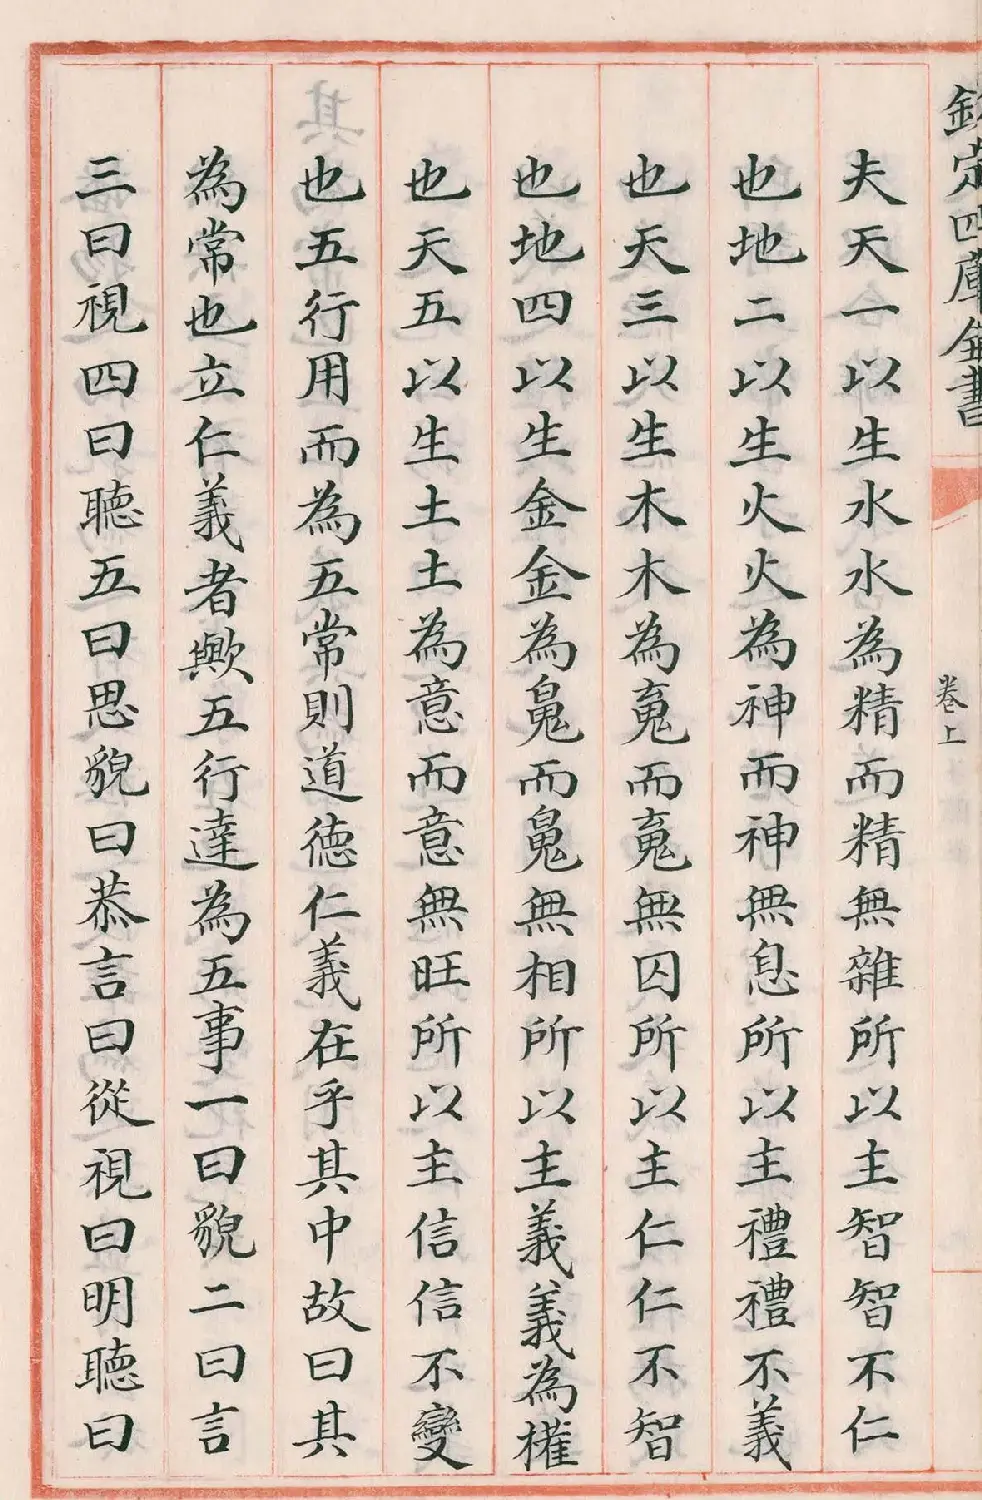 欽定四庫全書
卷上
夫天一以生水水為精而精無雜所以主智智不仁
也地二以生火火為神而神無息所以主禮禮不義
也天三以生木木為䰟而䰟無囚所以主仁仁不智
也地四以生金金為鬽而鬽無相所以主義義為權
也天五以生土土為意而意無旺所以主信信不變
也五行用而為五常則道德仁義在乎其中故曰其
為常也立仁義者歟五行達為五事一曰貌二曰言
三曰視四曰聽五曰思貌曰恭言曰從視曰明聽曰